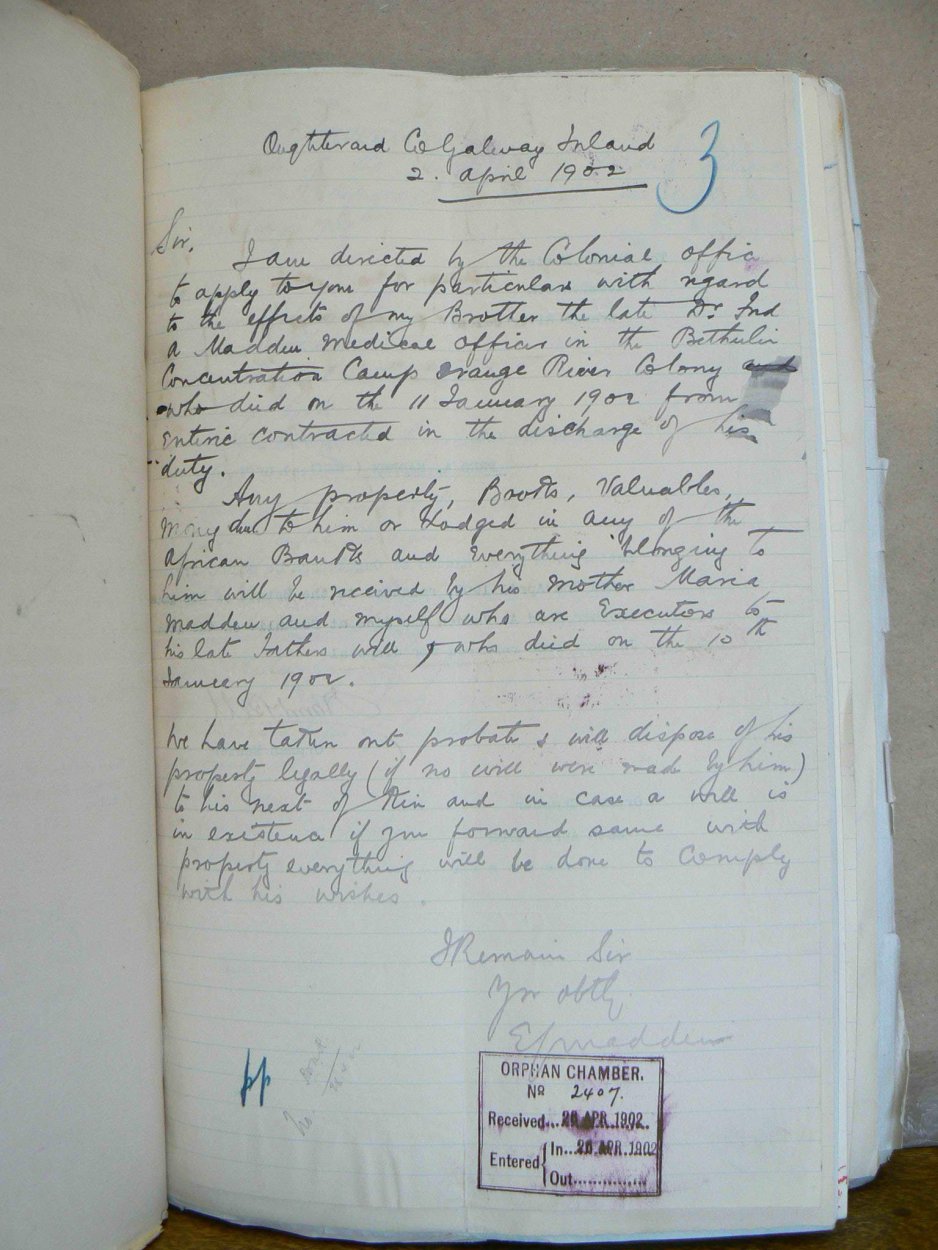 Oughterard Co Galway Ireland
2. April 1902
3
Sir,
I am directed by the Colonial office
to apply to you for particulars with regard
to the effects of my Brother the late Dr. Fred
A Madden Medical Officer in the Bethulie
Concentration Camp Orange River Colony and
who died on the 11 January 1902 from
Enteric contracted in the discharge of his
duty.
Any property, Books, Valuables,
Money due to him or lodged in any of the
African Banks and everything belonging to
him will be received by his Mother Maria
Madden and myself who are Executors to
his late Fathers will, who died on the 10th
January 1902.
We have taken out probate & will dispose of his
property legally (if no will were made by him)
to his next of Kin and in case a will is
in existence if you forward same with
property everything will be done to comply
with his wishes.
I Remain Sir
Yr obtly
E J Madden
pp
ORPHAN CHAMBER.
No 2407.
Received...26 APR. 1902.
Entered { In...26 APR. 1902
Out...............